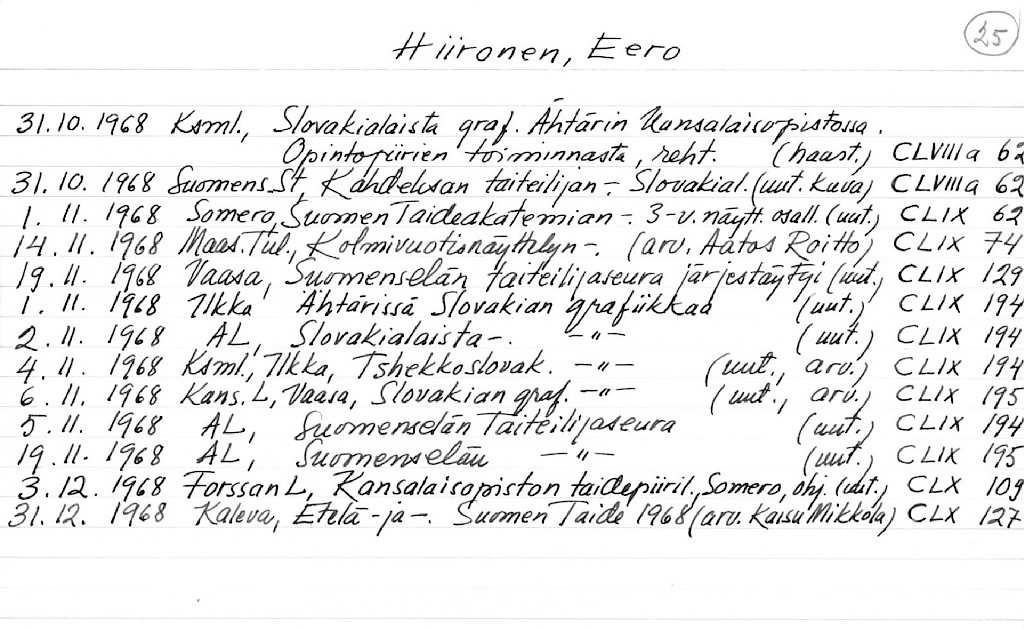 25
Hiironen, Eero
31.10.1968 Ksml., Slovakialaista graf. Ähtärin Kansalaisopistossa.
Opintopiirien toiminnasta, reht. (haast.) CLVIIIa 62
31.10.1968 Suomens.St, Kahdeksan taiteilijan-. Slovakial. (uut. kuva) CLVIIIa 62
1. 11. 1968 Somero, Suomen Taideakatemian-. 3-v. näytt. osall. (uut.) CLIX 62
14.11.1968 Maas.Tul., Kolmivuotisnäyttelyn-. (arv. Aatos Roitto) CLIX 74
19.11.1968 Vaasa, Suomenselän taiteilijaseura järjestäytyi (uut.) CLIX 129
1. 11. 1968 Ilkka Ähtärissä Slovakian grafiikkaa (uut.) CLIX 194
2.11. 1968 AL, Slovakialaista-. -"- (uut.) CLIX 194
4.11. 1968 Ksml., Ilkka, Tshekkoslovak. -"- (uut., arv.) CLIX 194
6.11. 1968 Kans.L, Vaasa, Slovakian graf. -"- (uut., arv.) CLIX 195
5.11. 1968 AL, Suomenselän Taiteilijaseura (uut.) CLIX 194
19.11. 1968 AL, Suomenselän -"- (uut.) CLIX 195
3.12. 1968 Forssan L, Kansalaisopiston taidepiiril., Somero, ohj. (uut.) CLX 109
31.12. 1968 Kaleva, Etelä-ja-. Suomen Taide 1968 (arv. Kaisu Mikkola) CLX 127